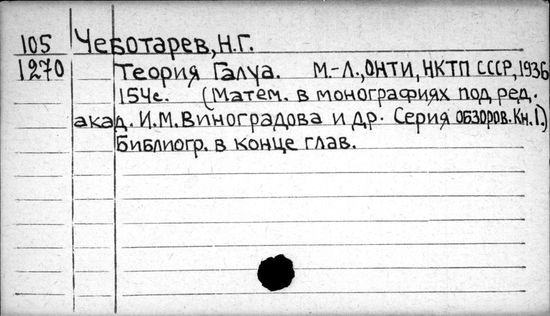 105 Чеботарев, Н.Г.
1270 Теория Галуа. М.-Л., ОНТИ, НКТП СССР, 1936
154с. (Матем. в монографиях под ред.
акад. И.М. Виноградова и др. Серия обзоров. Кн. I.)
Библиогр. в конце глав.